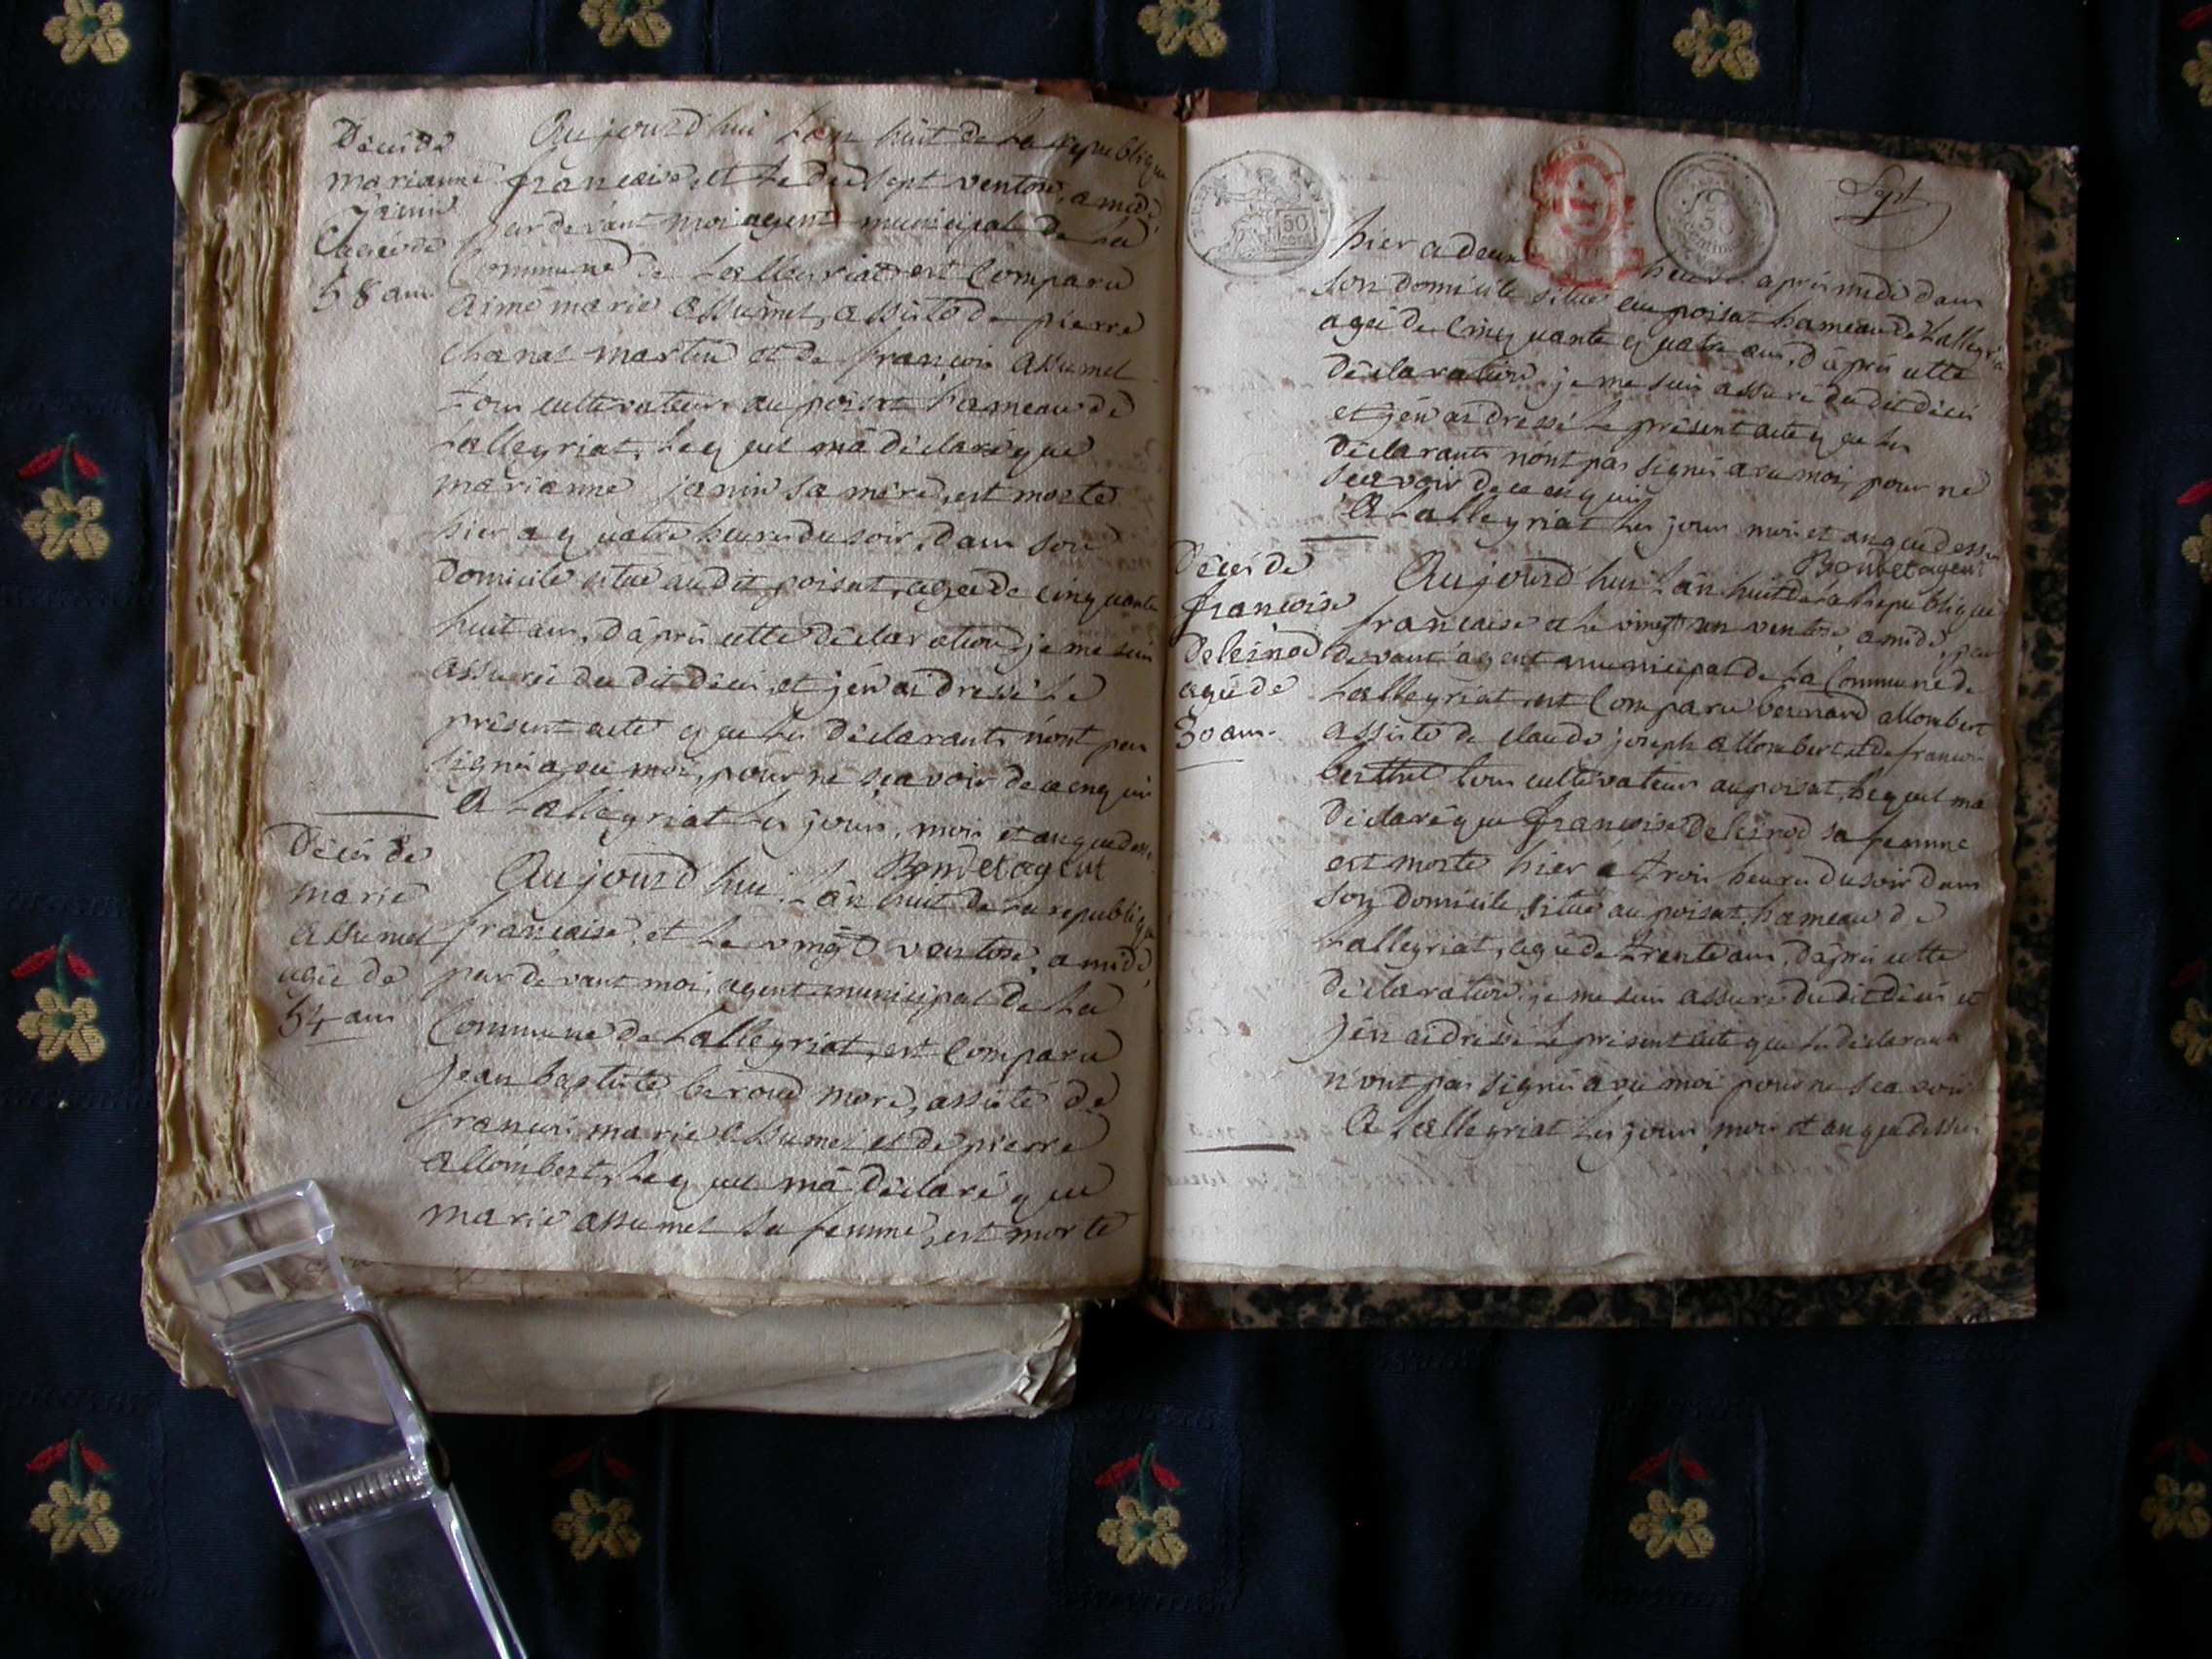 Décès de
marianne
janin
agée de
58 ans
Aujourd'hui L'an huit de La republique
francaise, et Le dix sept ventose, a midi,
par devant moi agent municipal de La
Commune de Lalleyriat est Comparu
aimé marie assumel, assisté de pierre
chanal martin et de françois assumel
tous cultivateurs au poisat hameau de
Lalleyriat, Lequel m'a déclaré que
marianne janin sa mere, est morte
hier a quatre heures du soir, dans son
domicile situé au dit poisat, agée de cinquante
huit ans, d'après cette déclaration je me suis
assuré du dit décès et j'en ai dressé Le
présent acte que Les déclarants n'ont pas
signés avec moi, pour ne sçavoir de ce enquis
A Lalleyriat Les jours, mois et an que dess.
Bondet agent
Décès de
marie
assumel
agée de
54 ans
Aujourd'hui L'an huit de La republique
francaise, et Le vingt ventose, a midi,
par devant moi, agent municipal de La
Commune de Lalleyriat, est Comparu
jean baptiste beroud more, assisté de
francois marie assumel et de pierre
allombert, Lequel m'a déclaré que
marie assumel sa femme, est morte
50
Sept
hier a deux heures après midi dans
son domicile situé au poisat hameau de Lalleyriat
agée de Cinquante quatre ans, d'après cette
déclaration je me suis assuré du dit décès
et j'en ai dressé Le présent acte que Les
déclarants n'ont pas signés avec moi, pour ne
scavoir de ce enquis
A Lalleyriat Les jours mois et an que dessus
Bondet agent
Décès de
francoise
deleinod
agée de
30 ans.
Aujourd'hui L'an huit de La Republique
francaise et Le vingt un ventose, a midi, par
devant agent municipal de La Commune de
Lalleyriat est Comparu bernard allombert
assisté de claude joseph allombert et de francois
berthet tous cultivateurs au poisat, Lequel m'a
déclaré que francoise deleinod sa femme
est morte hier a trois heures du soir dans
son domicile situé au poisat hameau de
Lalleyriat, agée de trente ans, d'après cette
déclaration je me suis assuré du dit décès et
j'en ai dressé Le présent acte que Les déclarants
n'ont pas signés avec moi pour ne scavoir
A Lalleyriat Les jours mois et an que dessus